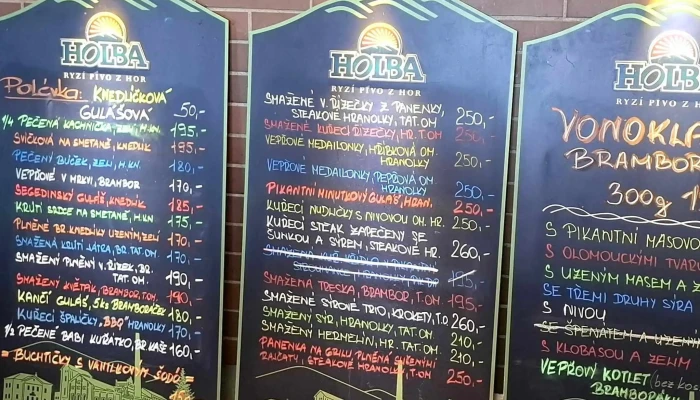 HOLBA
RYZÍ PIVO Z HOR
Polévka: KNEDLÍČKOVÁ
GULÁŠOVÁ 50,-
1/4 PEČENÁ KACHNIČKA, ZELÍ, H.KN. 195,-
SVÍČKOVÁ NA SMETANĚ, KNEDLÍK 195,-
PEČENÝ BŮČEK, ZELÍ, H.KN. 180,-
VEPŘOVÉ V MRKVI, BRAMBOR 170,-
SEGEDINSKÝ GULÁŠ, KNEDLÍK 185,-
KRŮTÍ SRDCE NA SMETANĚ, H.KN 175,-
PLNĚNÉ BR. KNEDLÍKY UZENÍM, ZELÍ 170,-
SMAŽENÁ KRŮTÍ JÁTRA, BR. TAT.OM. 170,-
SMAŽENÝ PLNĚNÝ V. ŘÍZEK, BR. 190,-
TAT. OM.
SMAŽENÝ KVĚTÁK, BRAMBOR, T.OM. 190,-
KANČÍ GULÁŠ, 5KS BRAMBORÁČEK 180,-
KUŘECÍ ŠPALÍČKY „BBQ" HRANOLKY 170,-
1/2 PEČENÉ BABI KUŘÁTKO, BR. KAŠE 160,-
= BUCHTIČKY S VANILKOVÝM ŠODÓ =
HOLBA
RYZÍ PIVO Z HOR
SMAŽENÉ V. ŘÍZEČKY Z PANENKY,
STEAKOVÉ HRANOLKY, TAT. OM. 250,-
SMAŽENÉ KUŘECÍ ŘÍZEČKY, HR. T.OM 250,-
VEPŘOVÉ MEDAILONKY, HŘIBKOVÁ OM.
HRANOLKY 250,-
VEPŘOVÉ MEDAILONKY, PEPŘOVÁ OM.
HRANOLKY 250,-
PIKANTNÍ MINUTKOVÝ GULÁŠ, HRAN. 250,-
KUŘECÍ NUDLIČKY S NIVOVOU OM. HR. 250,-
KUŘECÍ STEAK ZAPEČENÝ SE
ŠUNKOU A SÝREM, STEAKOVÉ HR. 260,-
195,-
SMAŽENÁ TRESKA, BRAMBOR, T.OM 195,-
SMAŽENÉ SÝROVÉ TRIO, KROKETY, T.O. 260,-
SMAŽENÝ SÝR, HRANOLKY, TAT. OM 210,-
SMAŽENÝ HERMELÍN, HR. TAT. OM. 210,-
PANENKA NA GRILU PLNĚNÁ SUŠENÝMI
RAJČATY, STEAKOVÉ HRANOLKY, T.OM 250,-
HOLBA
RYZÍ PIVO Z HOR
VONOKLA
BRAMBOR
300g 1
S PIKANTNÍ MASOVO
S OLOMOUCKÝMI TVARŮ
S UZENÝM MASEM A Z
SE TŘEMI DRUHY SÝRA
S NIVOU
SE ŠPENÁTEM A UZENÝM
S KLOBÁSOU A ZELÍM
VEPŘOVÝ KOTLET (bez kos
BRAMBORÁK